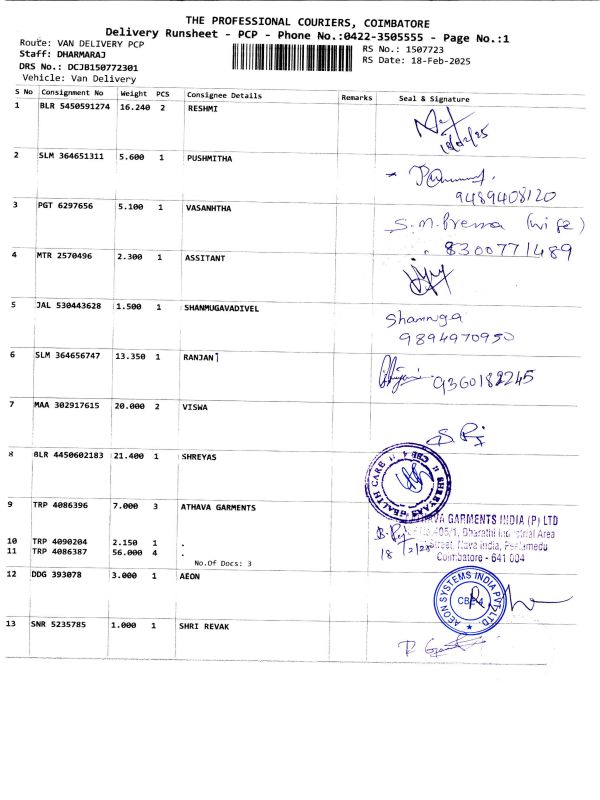 THE PROFESSIONAL COURIERS, COIMBATORE
Delivery Runsheet - PCP - Phone No.:0422-3505555 - Page No.:1
Route: VAN DELIVERY PCP
RS No.: 1507723
Staff: DHARMARAJ
RS Date: 18-Feb-2025
DRS No.: DCJB150772301
Vehicle: Van Delivery
S No Consignment No Weight PCS Consignee Details Remarks Seal & Signature
1 BLR 5450591274 16.240 2 RESHMI
18/02/25
2 SLM 364651311 5.600 1 PUSHMITHA
9489408120
3 PGT 6297656 5.100 1 VASANHTHA
S.M.Prema (wife)
8300771489
4 MTR 2570496 2.300 1 ASSITANT
5 JAL 530443628 1.500 1 SHANMUGAVADIVEL
Shanmuga
9894970950
6 SLM 364656747 13.350 1 RANJANI
9360182245
7 MAA 302917615 20.000 2 VISWA
8 BLR 4450602183 21.400 1 SHREYAS
SHREYAAS HEALTH CARE CBE 4
9 TRP 4086396 7.000 3 ATHAVA GARMENTS
GARMENTS INDIA (P) LTD
405/1, Bharathi Industrial Area
10 TRP 4090204 2.150 1 .
Street, Nava India, Peelamedu
18/2/25
11 TRP 4086387 56.000 4 .
Coimbatore - 641 004
No.Of Docs: 3
12 DDG 393078 3.000 1 AEON
AEON SYSTEMS INDIA PVT. LTD.
CBE-4
13 SNR 5235785 1.000 1 SHRI REVAK